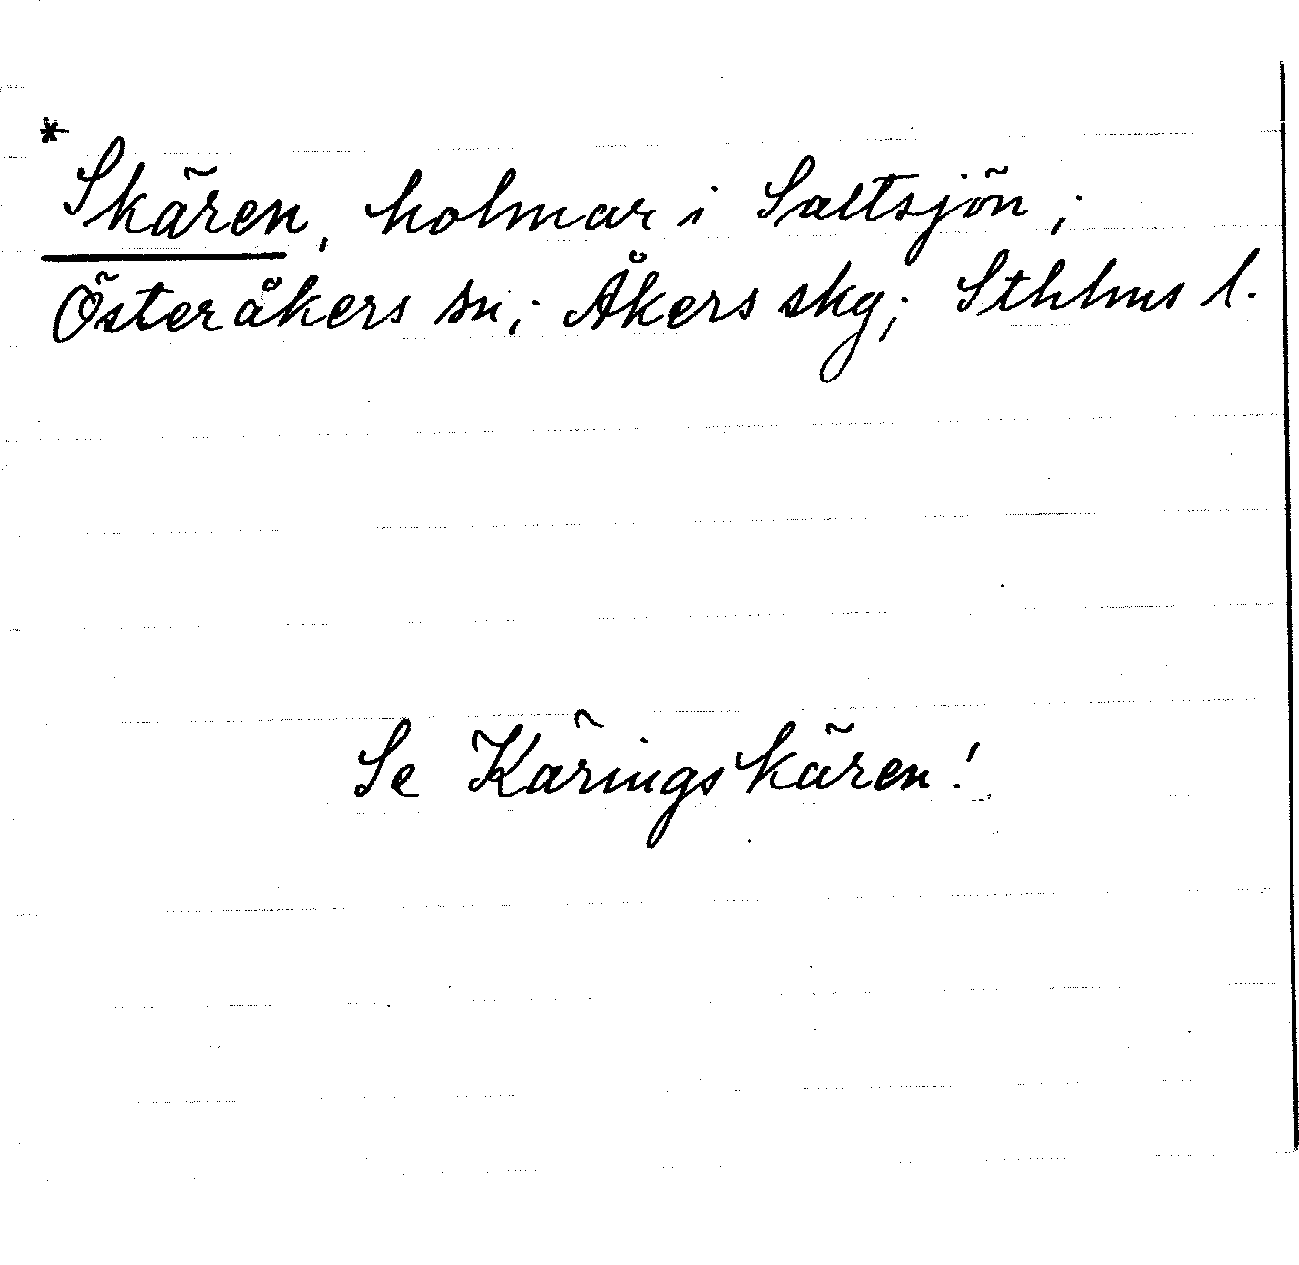 * Skären, holmar i Saltsjön;
Österåkers sn; Åkers skg; Sthlms l.
Se Käringskären!